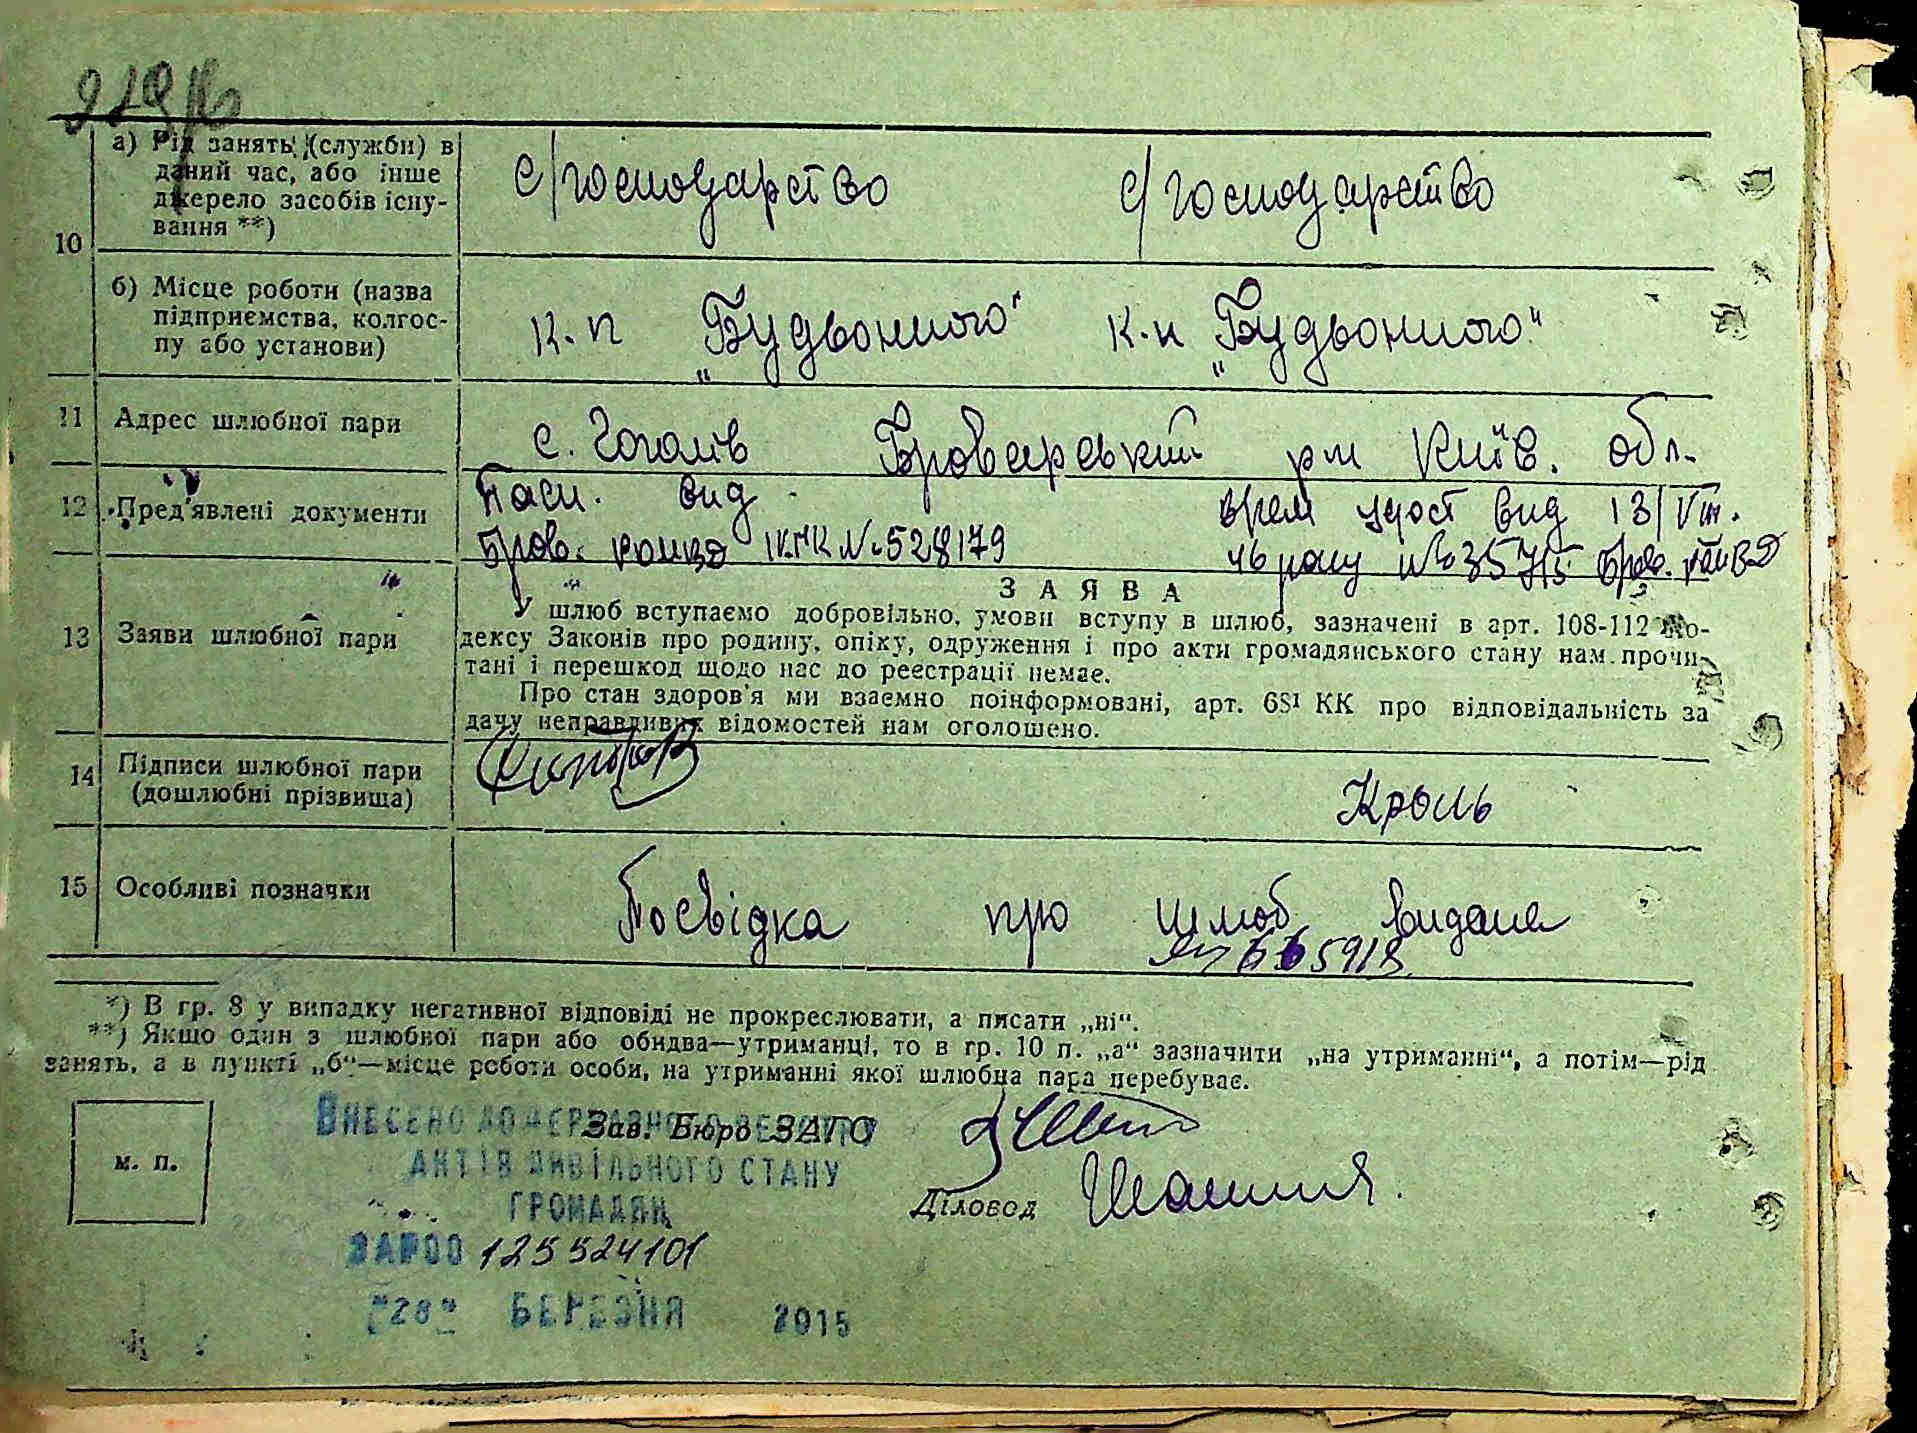 10
а) Рід занять (служби) в
даний час, або інше
джерело засобів існу-
вання **)
с/господарство с/господарство
б) Місце роботи (назва
підприємства, колгос-
пу або установи)
к.п „Будьонного" к.п „Будьонного"
11 Адрес шлюбної пари
с. Гоголів Броварський р-н Київ. обл.
12 Пред'явлені документи
Пасп. вид врем удост вид 13/VIII.
Бров. №528179 46 року №35715 Бров.
13 Заяви шлюбної пари
ЗАЯВА
У шлюб вступаємо добровільно, умови вступу в шлюб, зазначені в арт. 108-112 Ко-
дексу Законів про родину, опіку, одруження і про акти громадянського стану нам прочи-
тані і перешкод щодо нас до реєстрації немає.
Про стан здоров'я ми взаємно поінформовані, арт. 68¹ КК про відповідальність за
дачу неправдивих відомостей нам оголошено.
14 Підписи шлюбної пари
(дошлюбні прізвища)
Кроль
15 Особливі позначки
Посвідка про шлюб видана
*) В гр. 8 у випадку негативної відповіді не прокреслювати, а писати „ні“.
**) Якщо один з шлюбної пари або обидва—утриманці, то в гр. 10 п. „а“ зазначити „на утриманні“, а потім—рід
занять, а в пункті „б“—місце роботи особи, на утриманні якої шлюбна пара перебуває.
м. п.
Зав. Бюро ЗАГС
Діловод
ВНЕСЕНО ДО ДЕРЖАВНОГО РЕЄСТРУ
АКТІВ ЦИВІЛЬНОГО СТАНУ
ГРОМАДЯН
ЗА №00 125524101
"28" БЕРЕЗНЯ 2015